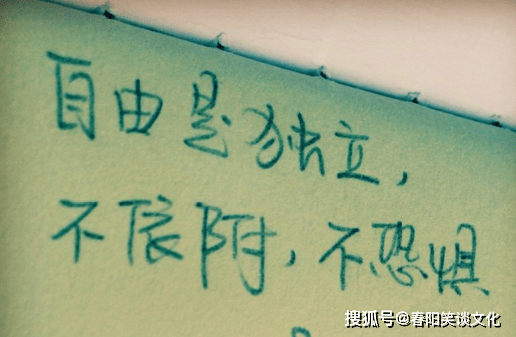 自由是独立,
不依附,不恐惧
搜狐号@春阳笑谈文化